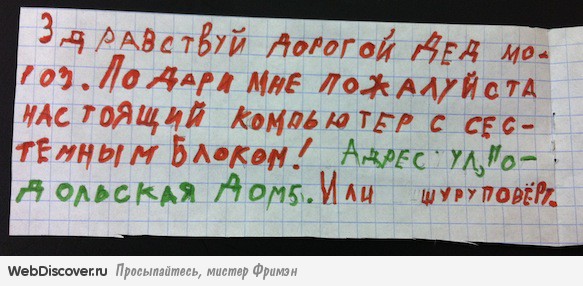 Здравствуй дорогой Дед мо-
роз. Подари мне пожалуйста
настоящий компьютер с сес-
темным блоком! Адрес ул, По-
дольская Дом5. Или шуруповёрт.
WebDiscover.ru Просыпайтесь, мистер Фримэн